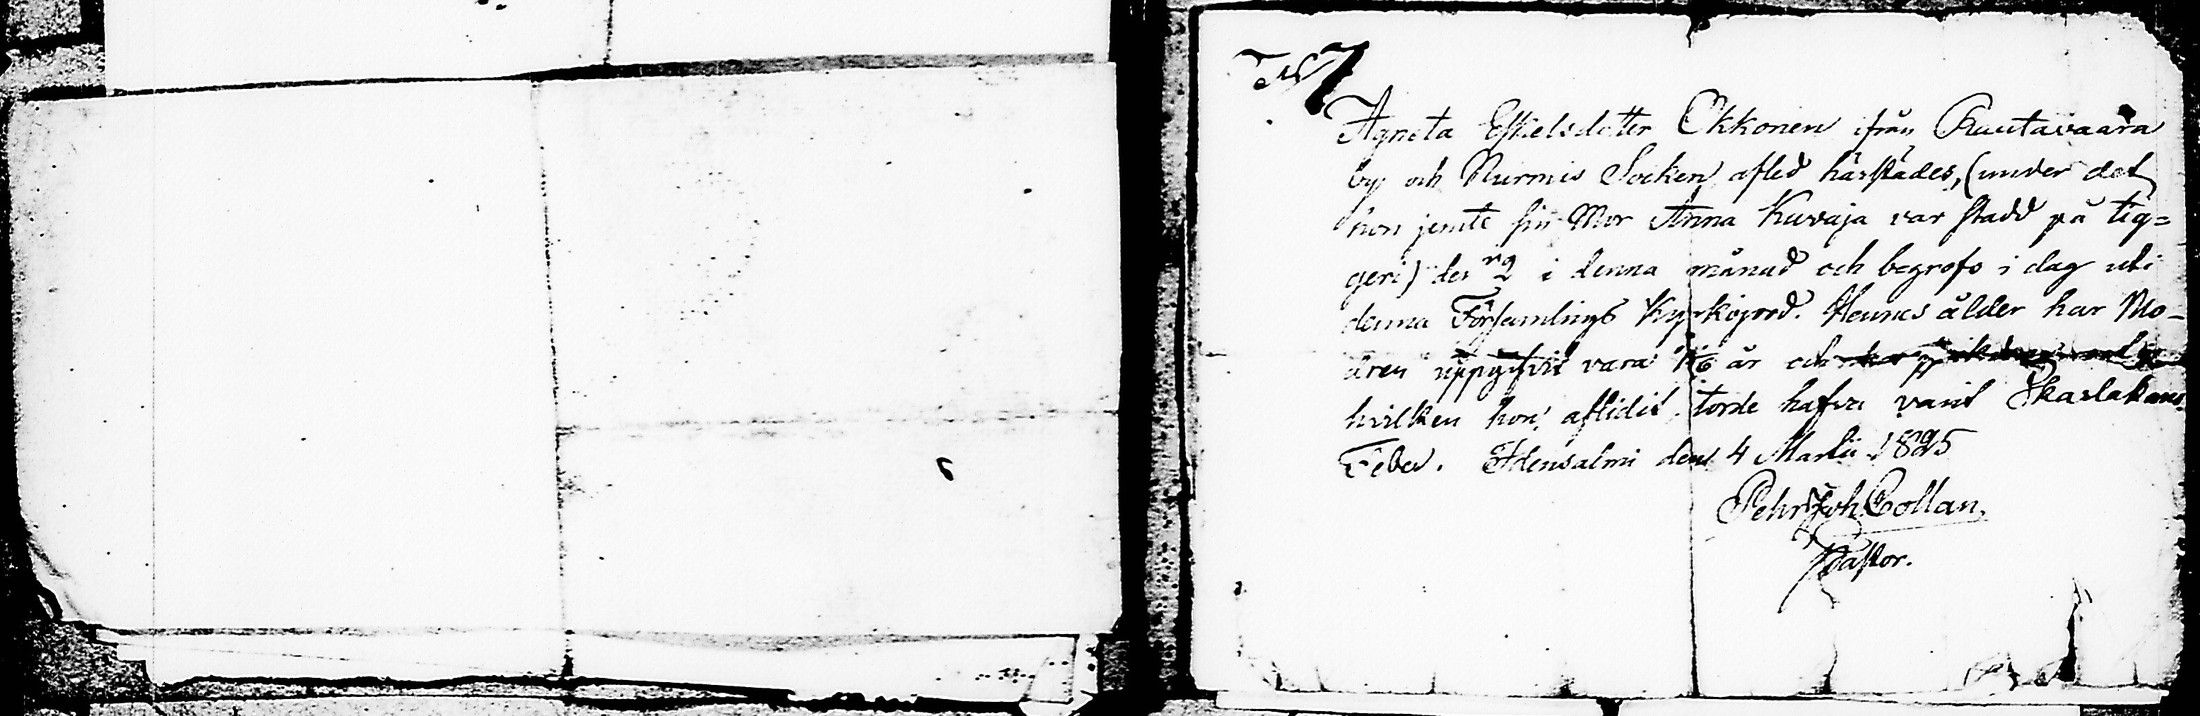 N 7
Agneta Eskelsdotter Okkonen ifrån Rautavaara
by och Nurmis Socken afled härstädes, (under det
hon jemte sin Mor Anna Kuvaja var stadd på tig=
geri) den 2 i denna månad och begrofs i dag uti
denna Församlings Kyrkogård. Hennes ålder har Mo-
dren uppgifvit vara 16 år och
hvilken hon aflidit, torde hafva varit Skarlakans
Feber. Idensalmi den 4 Martii 1825
Pehr Joh Collan.
Pastor.